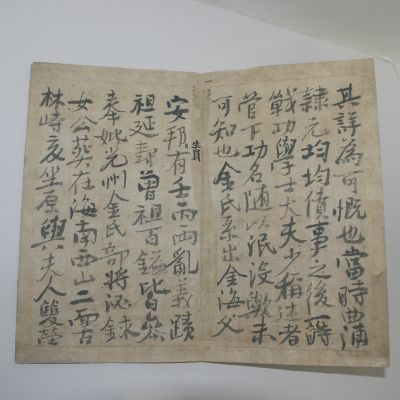 其詳爲可慨也當時典通
隷元均均僨事之後一時
戰功學士大夫少稱述者
管下功名随以泯没歟未
可知也金氏系出金海父
安邦有壬丙兩亂義蹟
生員
祖延 曾祖百鎰比自参
奉妣光州金氏部將 錄
女公葬在海南 山二
林峙亥坐原與夫人雙塋